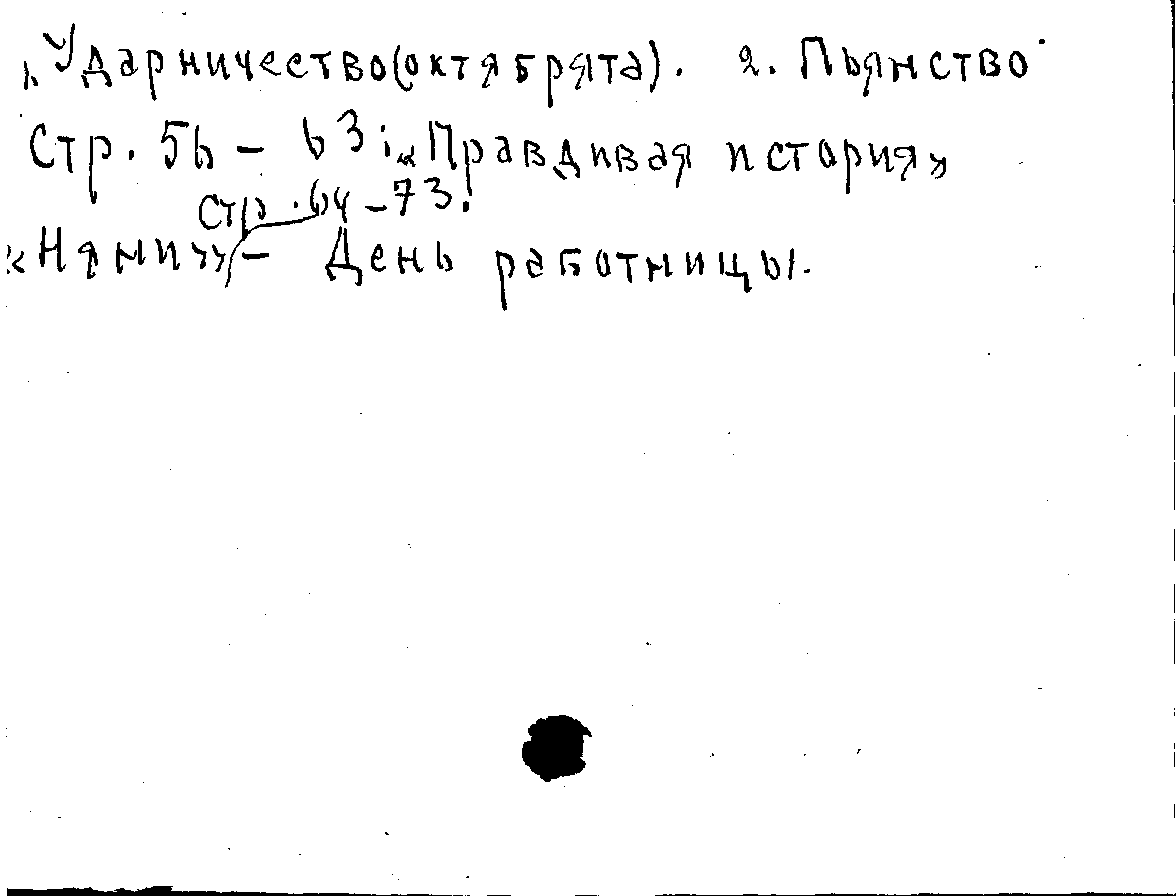 1. Ударничество (октябрята). 2. Пьянство
Стр. 56 – 63; «Правдивая история»
стр. 64 – 73.
«Нями» – День работницы.